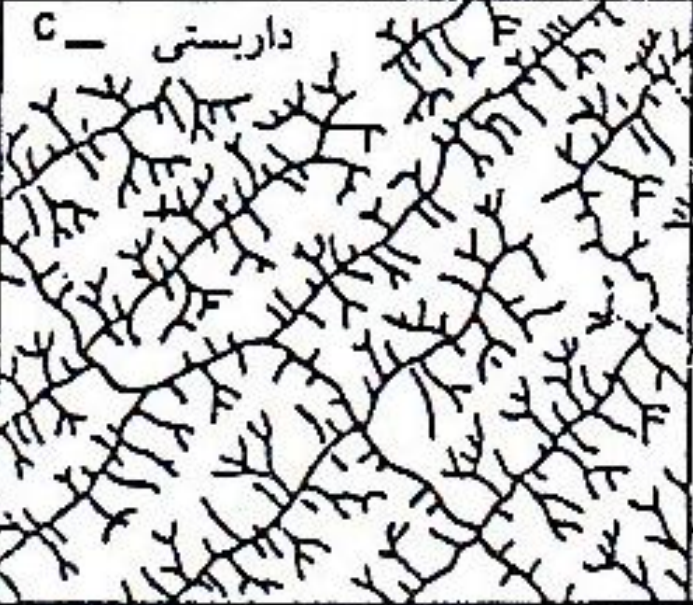 C _ داربستی